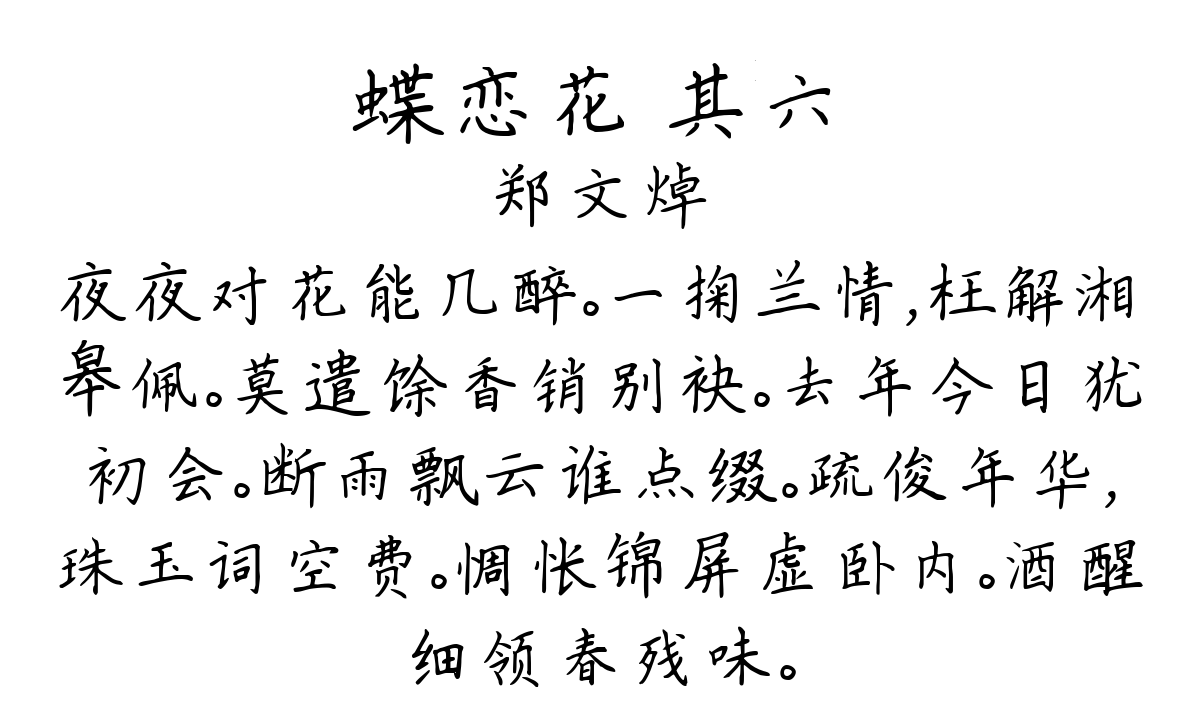 蝶恋花 其六
郑文焯
夜夜对花能几醉。一掬兰情,枉解湘
皋佩。莫遣馀香销别袂。去年今日犹
初会。断雨飘云谁点缀。疏俊年华,
珠玉词空费。惆怅锦屏虚卧内。酒醒
细领春残味。